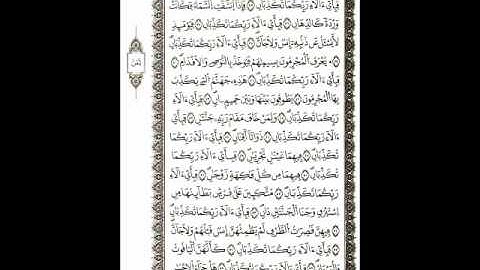 فبأي ءالاء ربكما تكذبان فإذا انشقت السماء فكانت
وردة كالدهان فبأي ءالاء ربكما تكذبان فيومئذ
لا يسئل عن ذنبه إنس ولا جان فبأي ءالاء ربكما تكذبان
يعرف المجرمون بسيمهم فيؤخذ بالنوصي والأقدام
فبأي ءالاء ربكما تكذبان هذه جهنم التي يكذب
بها المجرمون يطوفون بينها وبين حميم ءان فبأي
ءالاء ربكما تكذبان ولمن خاف مقام ربه جنتن
فبأي ءالاء ربكما تكذبان ذواتا أفنان فبأي ءالاء ربكما
تكذبان فيهما عينن تجرين فبأي ءالاء ربكما
تكذبان فيهما من كل فكهة زوجن فبأي ءالاء
ربكما تكذبان متكين على فرش بطائنها من
استبرق وجنا الجنتين دان فبأي ءالاء ربكما تكذبان
فيهن قصرت الطرف لم يطمثهن إنس قبلهم ولا جان
فبأي ءالاء ربكما تكذبان كأنهن الياقوت
والمرجان فبأي ءالاء ربكما تكذبان هل جزاء الاحسن
ثمن